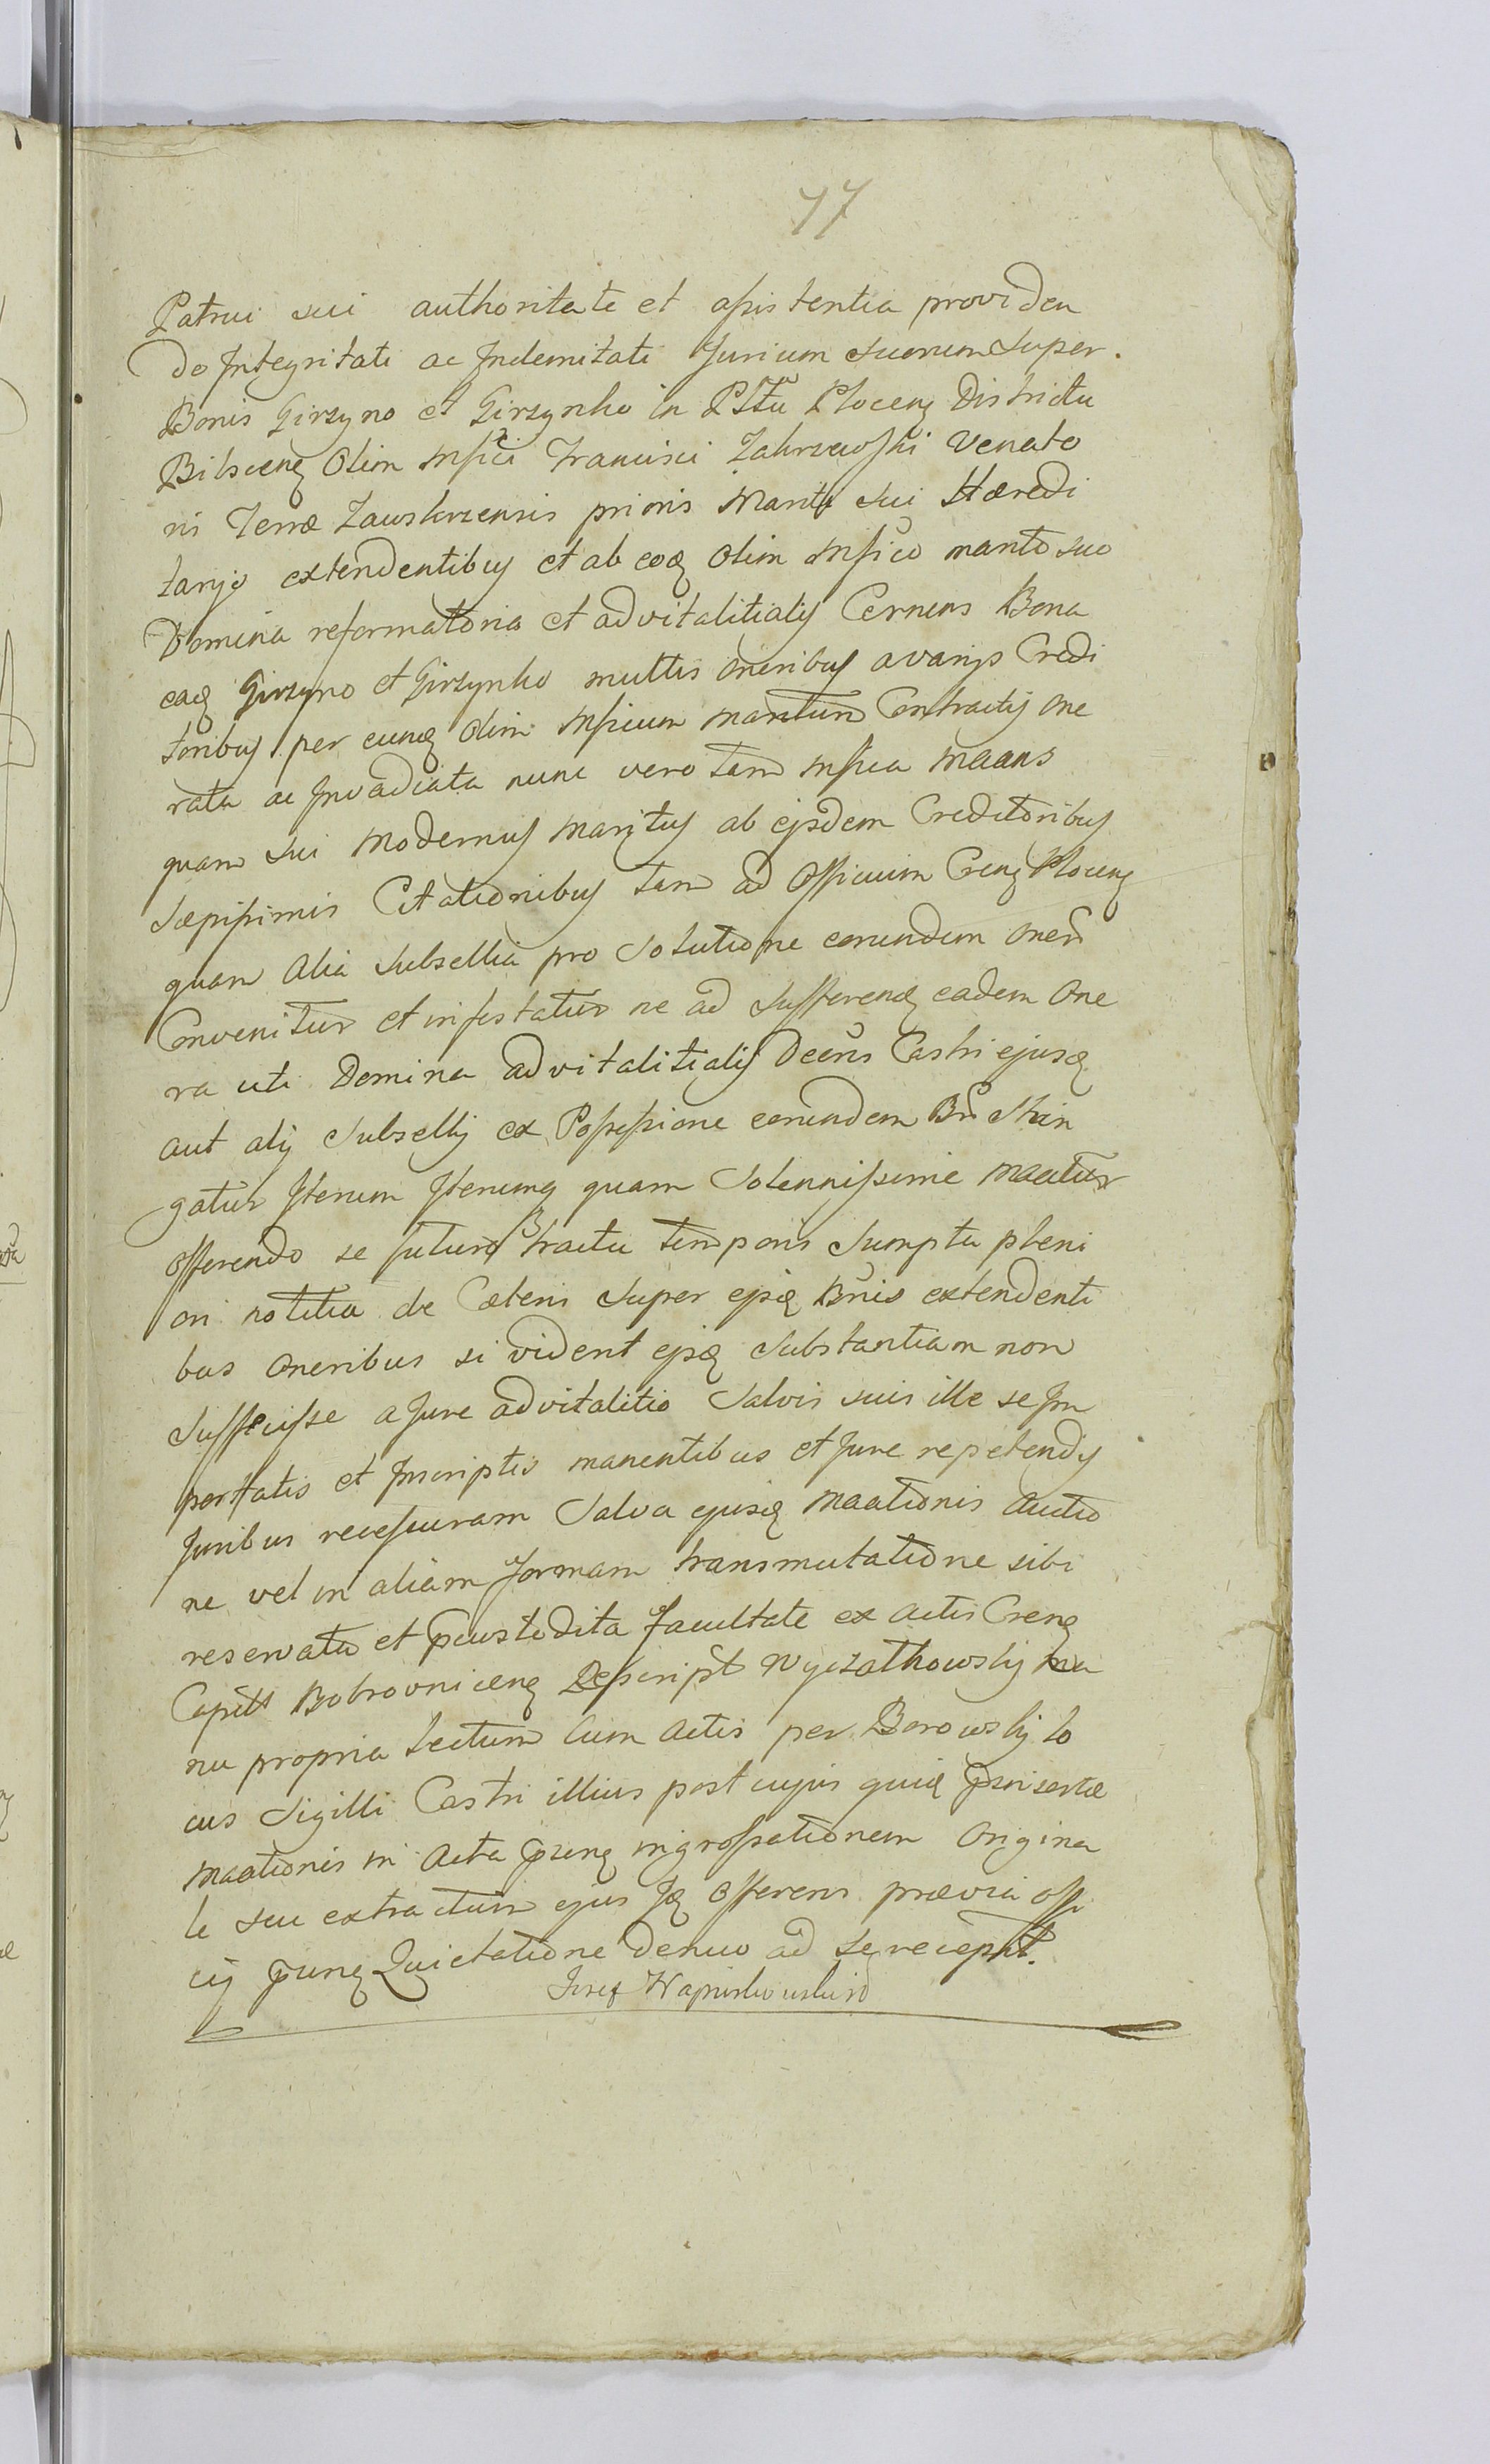 77
Patrui sui authoritate et assistentia providen
do Integritati ac Indemnitati Jurium suorum super
Bonis Girzyno et Girzynko in Płttu Plocenq Districtu
Bilscenq Olim Mfici Francisci Zakrzewski Venato
ris Terræ Zawskrzensis prioris Mariti sui Hæredi
tarijs extendentibus et ab eoq Olim Mfico marito suo
Domina reformatoria et advitalitialis Cernens Bona
eaq Girzyno et Girzynko multis oneribus a varijs Credi
toribus per eumq olim Mficum maritum Contractis one
rata ac Invadiata nunc vero tam Mfica Maans
quam sui Modernus Maritus ab ejsdem Creditoribus
Sæpissimis Citationibus tam ad Officium Crenq Plocenq
quam Alia Subsellia pro Solutione eorundem Oner
Convenitur et infestatur ne ad Sufferenq eadem One
ra uti Domina advitalitialis Decris Castri ejusq
aut alij Subsellij ex Possessione eorundem Bn Strin
gatur Iterum Iterumq quam Solennissime Maatur
offerendo se futuro tractu temporis Sumpta pleni
ori notitia de Cæteris Super ejsq Bnis extendenti
bus Oneribus si vident ejsq Substantiam non
Suffecisse a Jure advitalitio Salvis suis ille se Im
portatis et Inscriptis manentibus et Jure repetendis
Juribus recessuram Salva ejusq Maationis auctio
ne vel in aliam formam transmutatione sibi
reservata et pcustodita facultate ex Actis Crenq
Capitt Bobrovnicenq Descript Wyczatkowskij ma
nu propria Lectum Cum Actis per Borowskij Lo
cus Sigilli Castri illius post cujus quiq prinsertæ
Maationis in Acta prenq ingrossationem Origina
le seu extractum ejus Iq Offerens prævia offi
cij prenq Quietatione denuo ad se recepit.